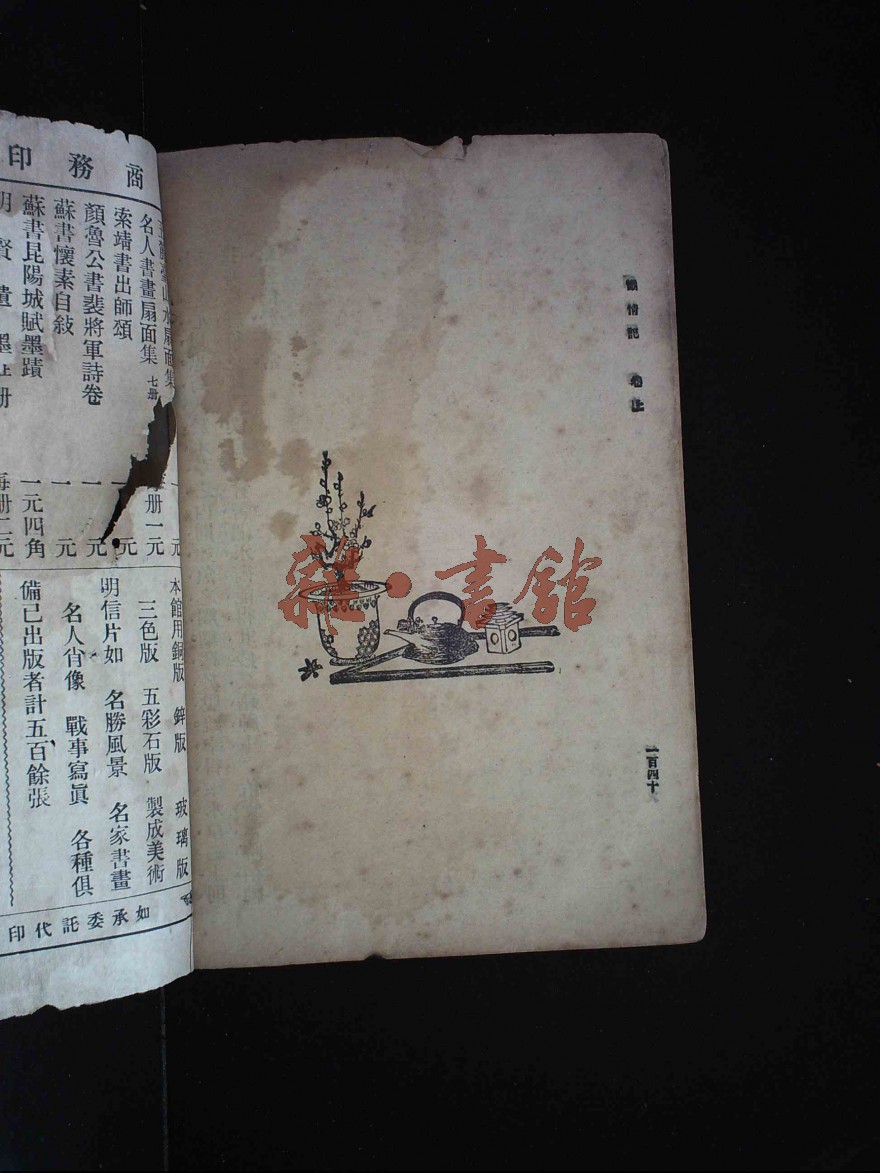 情記 卷上
一百四十
雜·書館
商務印
名人書畫扇面集 七册 每册一元
索靖書出師頌 一元
顏魯公書裴將軍詩卷 一元
蘇書懷素自敍 一元
蘇書昆陽城賦墨蹟 一元四角
明賢遺墨 上册 每册二元
本館用銅版 鋅版 玻璃版
三色版 五彩石版 製成美術
明信片如 名勝風景 名家書畫
名人肖像 戰事寫眞 各種俱
備已出版者計五百餘張
如承委託代印